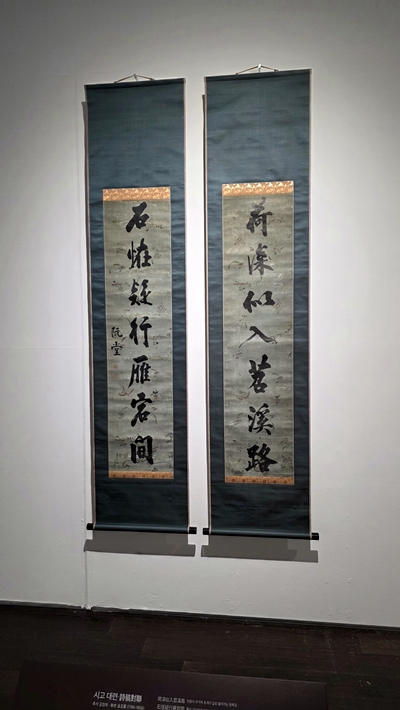 荷深似入苕溪路
石恠疑行雁宕間
阮堂
시고 대련·詩稿對聯